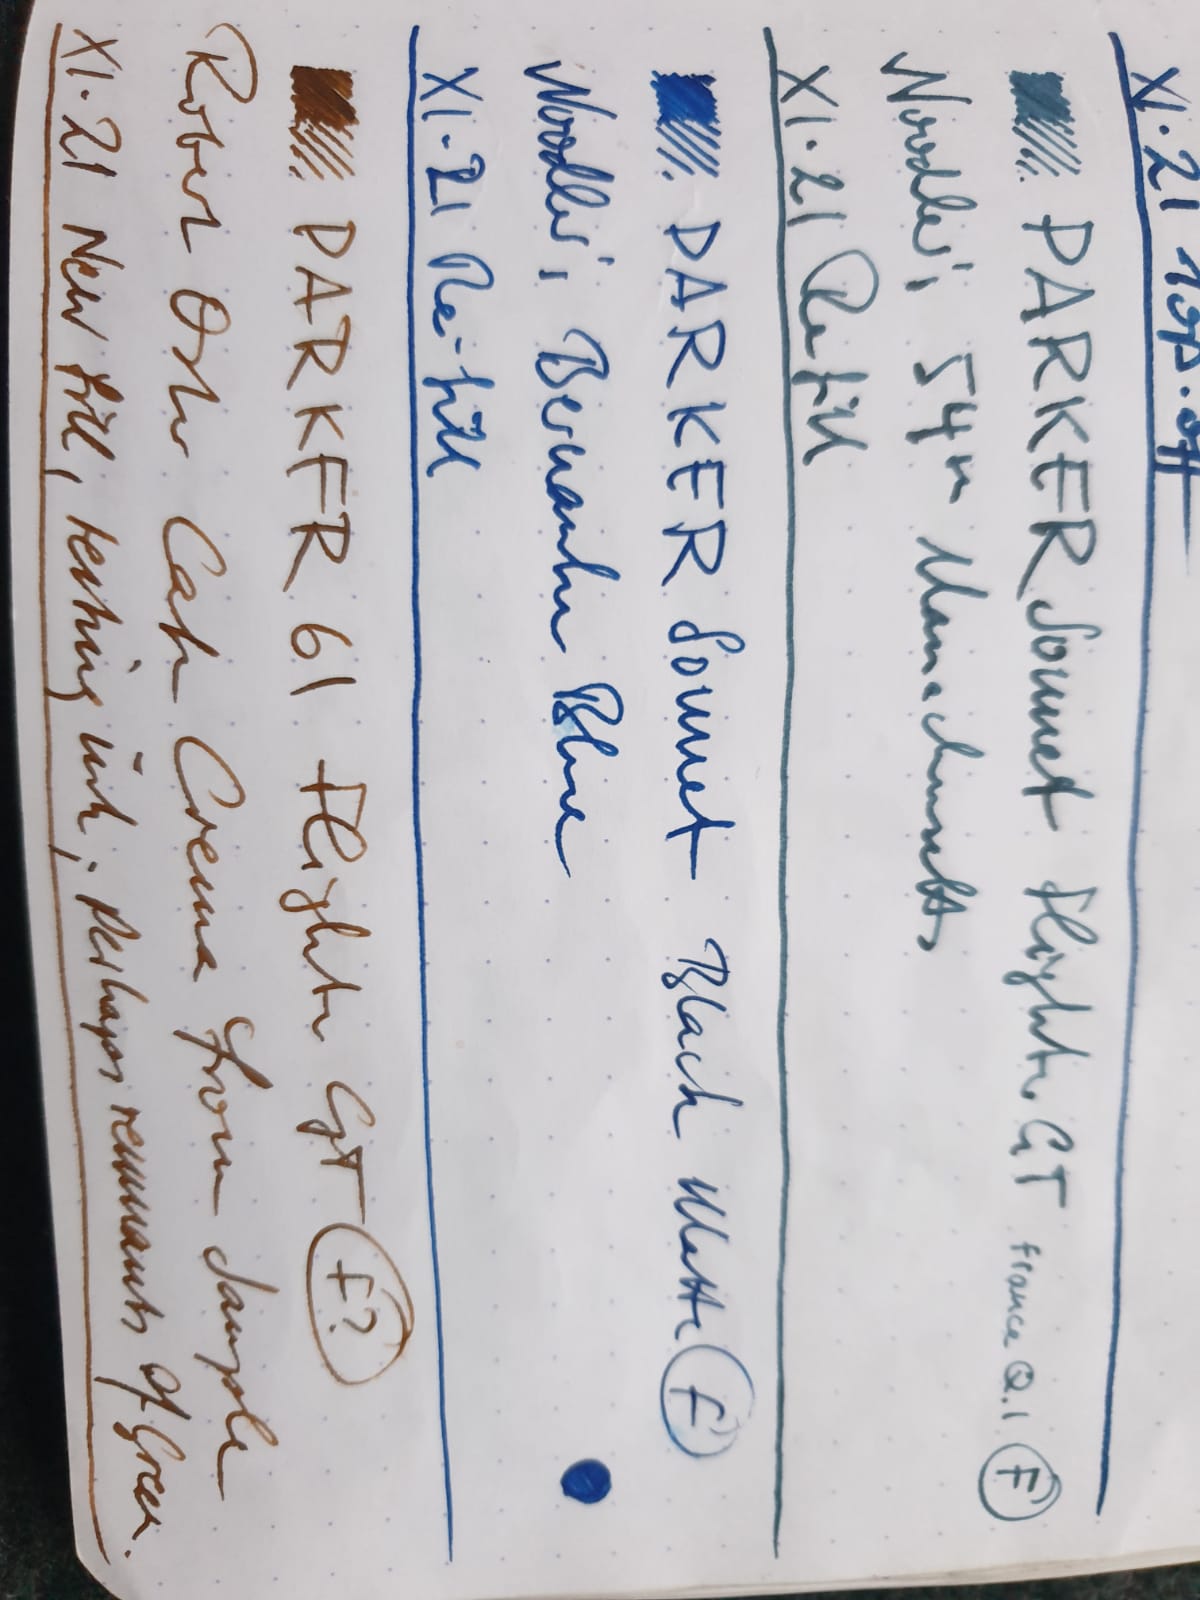 XI·21 Top-off
PARKER Sonnet Flighter GT France Q.I F
Noodler's 54th Massachusetts
XI·21 Refill
PARKER Sonnet Black Matte F
Noodler's Bernanke Blue
XI-21 Re-fill
PARKER 61 Flighter GT F?
Robert Oster Cafe Crema from Sample
XI-21 New fill, testing ink; Perhaps remnants of Green.